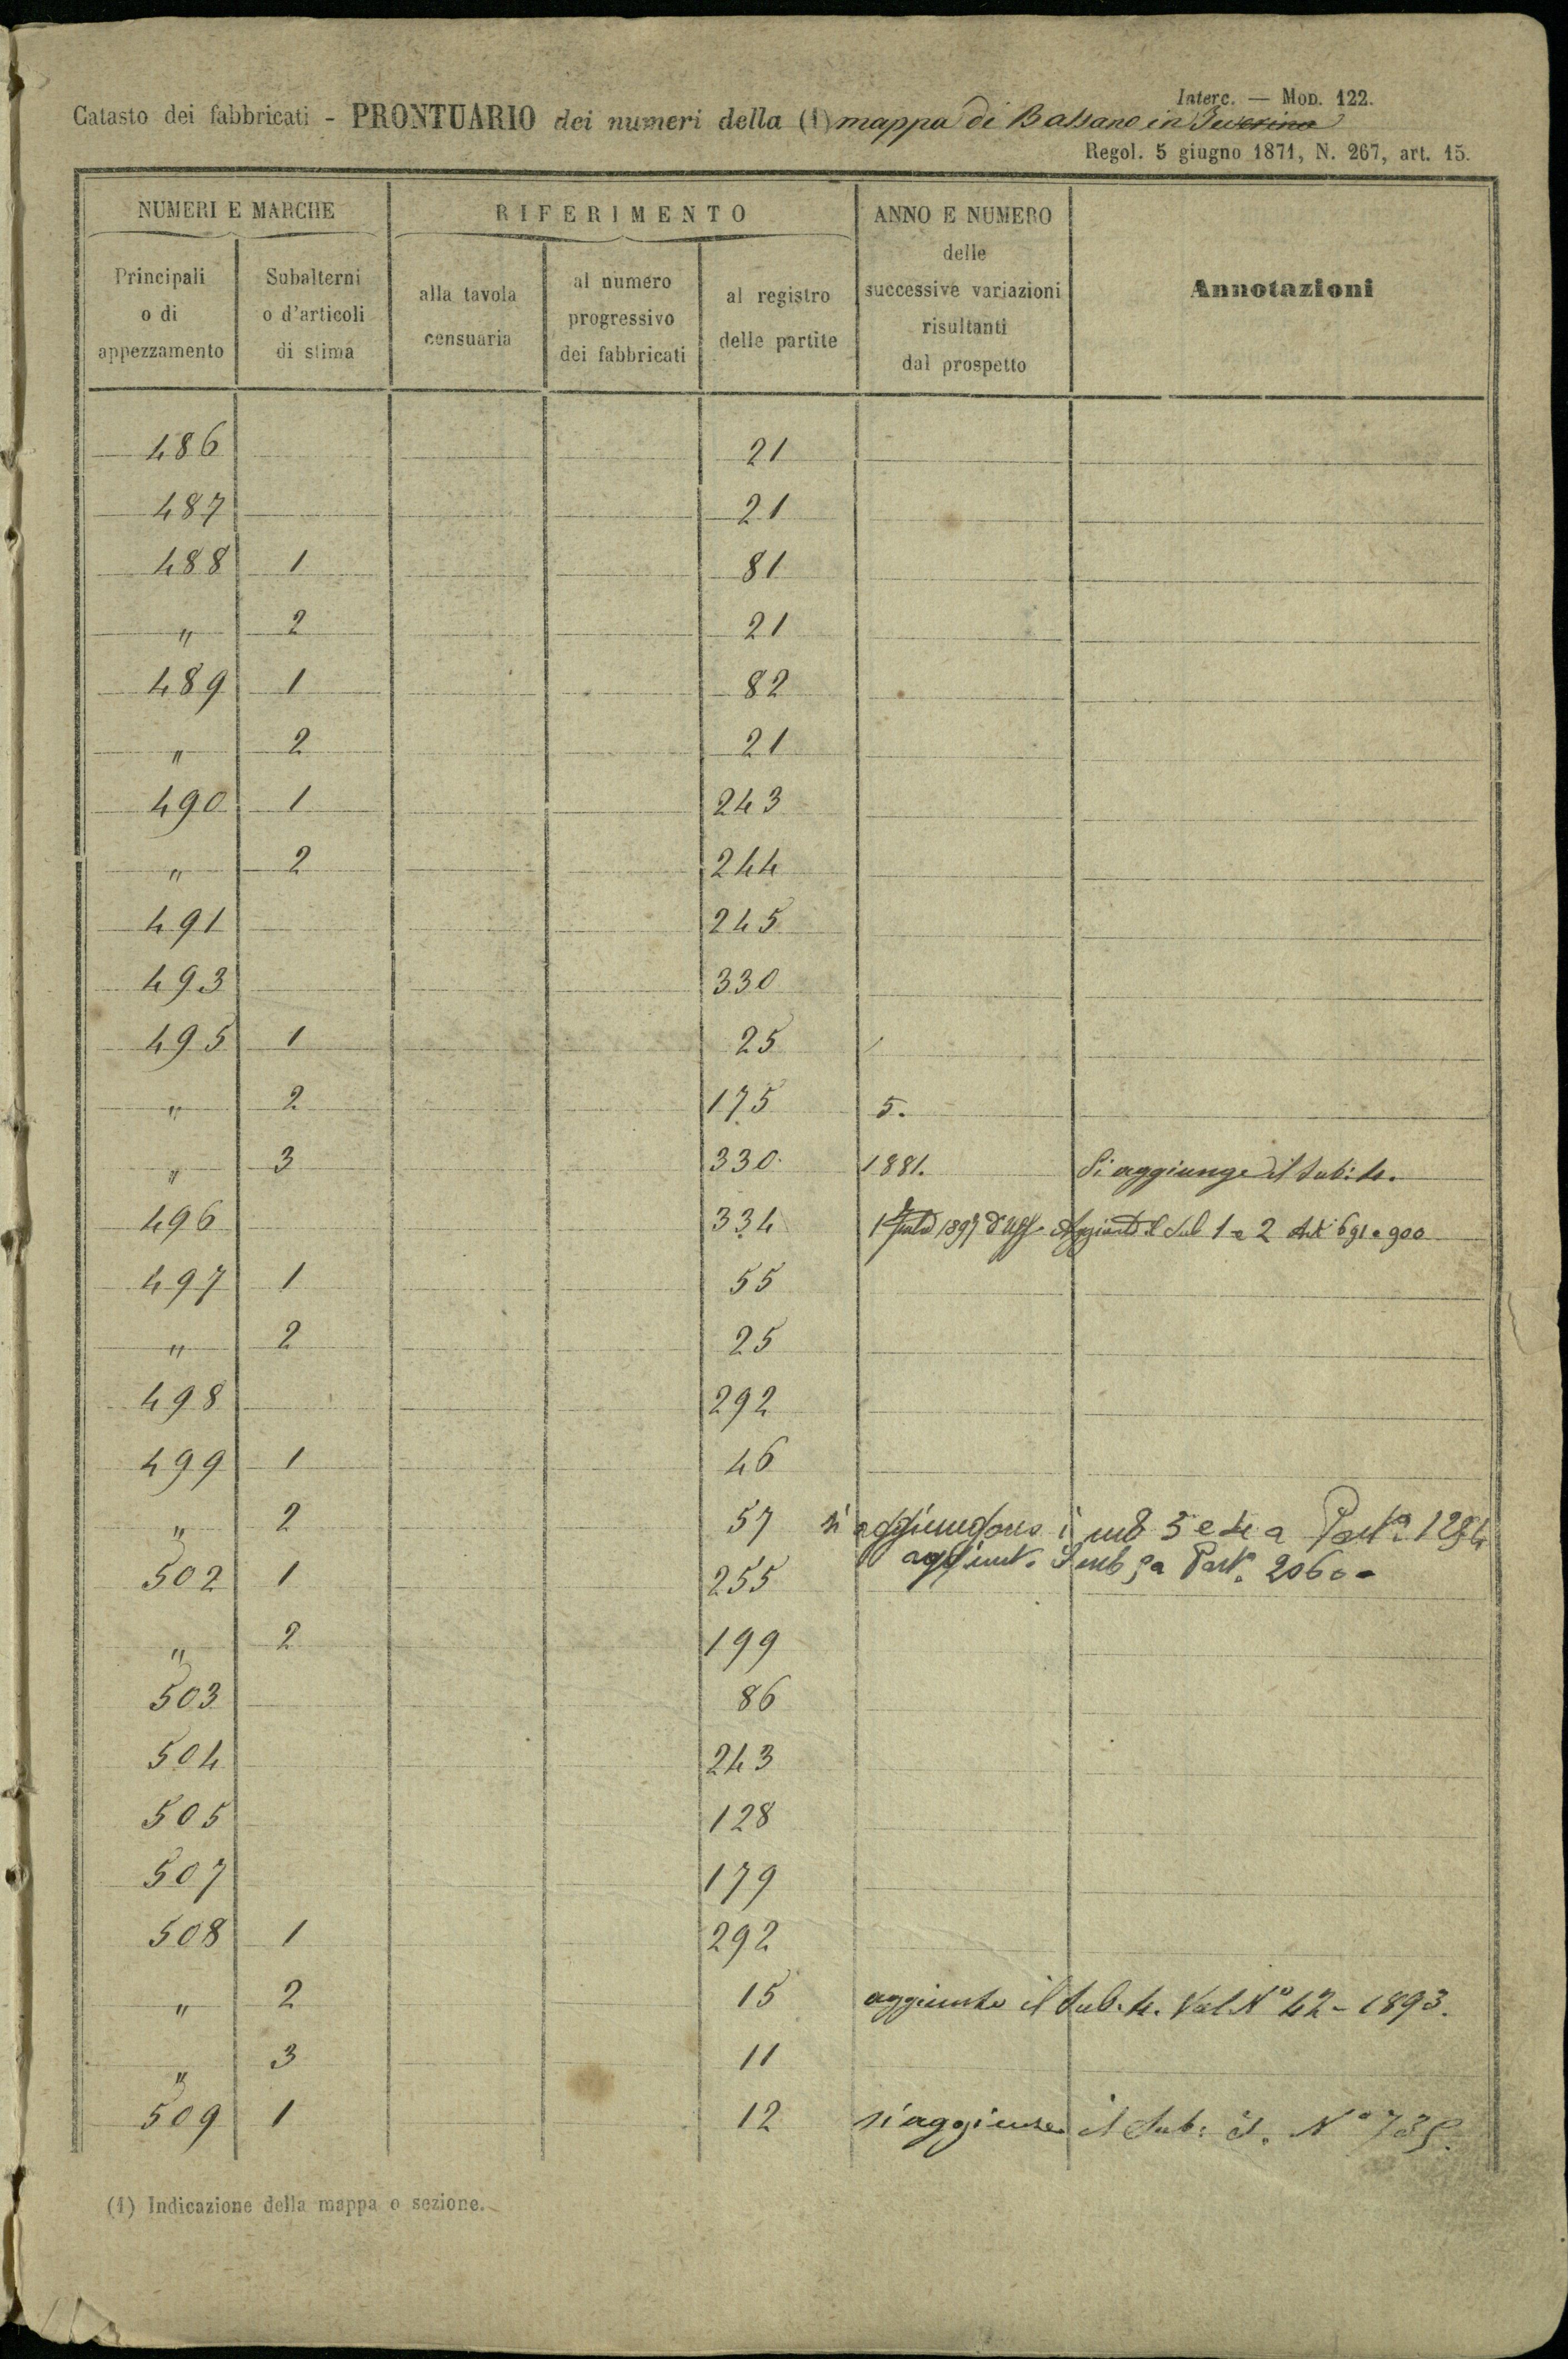 Interc. — Mod. 122.
Catasto dei fabbricati - PRONTUARIO dei numeri della (1) mappa di Bassano in Teverina
Regol. 5 giugno 1871, N. 267, art. 15.
NUMERI E MARCHE RIFERIMENTO ANNO E NUMERO delle successive variazioni risultanti dal prospetto Annotazioni
Principali o di appezzamento Subalterni o d'articoli di stima alla tavola censuaria al numero progressivo dei fabbricati al registro delle partite
486 21
487 21
488 1 81
" 2 21
489 1 82
" 2 21
490 1 243
" 2 244
491 245
493 330
495 1 25
" 2 175 5.
" 3 330 1881. Si aggiunge il Sub: 4.
496 334 1897 d'Uff. il Sub 1 e 2 691 e 900
497 1 55
" 2 25
498 292
499 1 46
" 2 57 si aggiungono i sub 3 e 4 a Part.
502 1 255 sub Part. 2060
" 2 199
503 86
504 243
505 128
507 179
508 1 292
" 2 15 aggiunto il Sub. 4. Vol N° 42 - 1893.
" 3 11
509 1 12 si aggiunse il Sub: N°
(1) Indicazione della mappa o sezione.